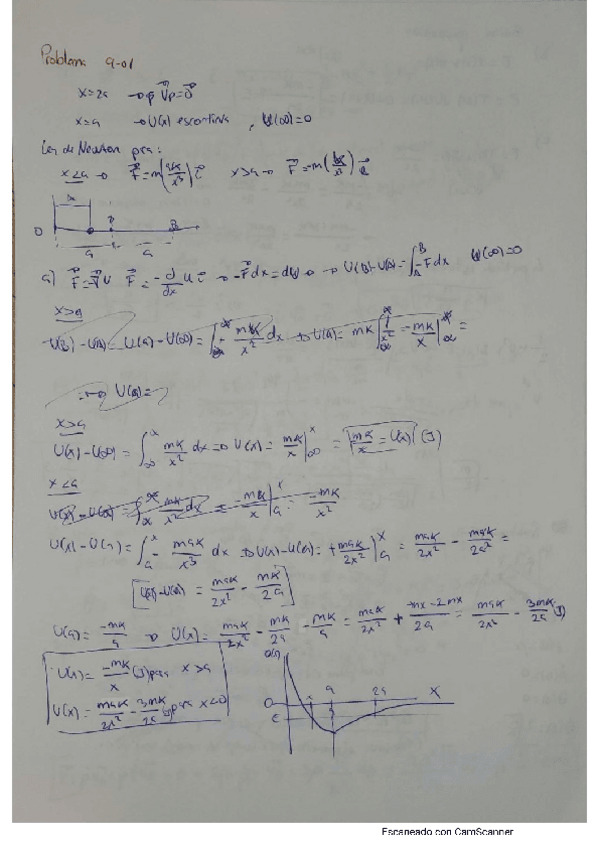 Problema 9-01
x=2a → Vp=0
x=a → U(x) es continua, U(∞)=0
Ley de Newton para:
x<a → F=m(ak/x³)i x>a → F=-m(k/x²)i
x
O P B
a a
a) F=-∇U F=-d/dx U i → -Fdx=dU → U(B)-U(A)=∫_A^B -Fdx U(∞)=0
x>a
U(B)-U(A)= U(a)-U(∞)=∫ mk/x² dx → U(a)= mk
→ U(a)=
x>a
U(x)-U(∞) = ∫_∞^x mk/x² dx → U(x)= mk/x |_∞^x = mk/x = U(x) (J)
x<a
U(x)-U(∞) = mk/x² dx = -mk/x = -mk/x²
U(x)-U(a)=∫_a^x - mak/x³ dx → U(x)-U(a)= + mak/2x² |_a^x = mak/2x² - mak/2a² =
U(x)-U(a) = mak/2x² - mk/2a
U(a)= -mk/a → U(x)= mak/2x² - mk/2a - mk/a = mak/2x² + -mk-2mk/2a = mak/2x² - 3mk/2a (J)
U(x)= -mk/x (J) para x>a
U(x)= mak/2x² - 3mk/2a (J) para x<a
U(x)
O x a 2a X
E
Escaneado con CamScanner